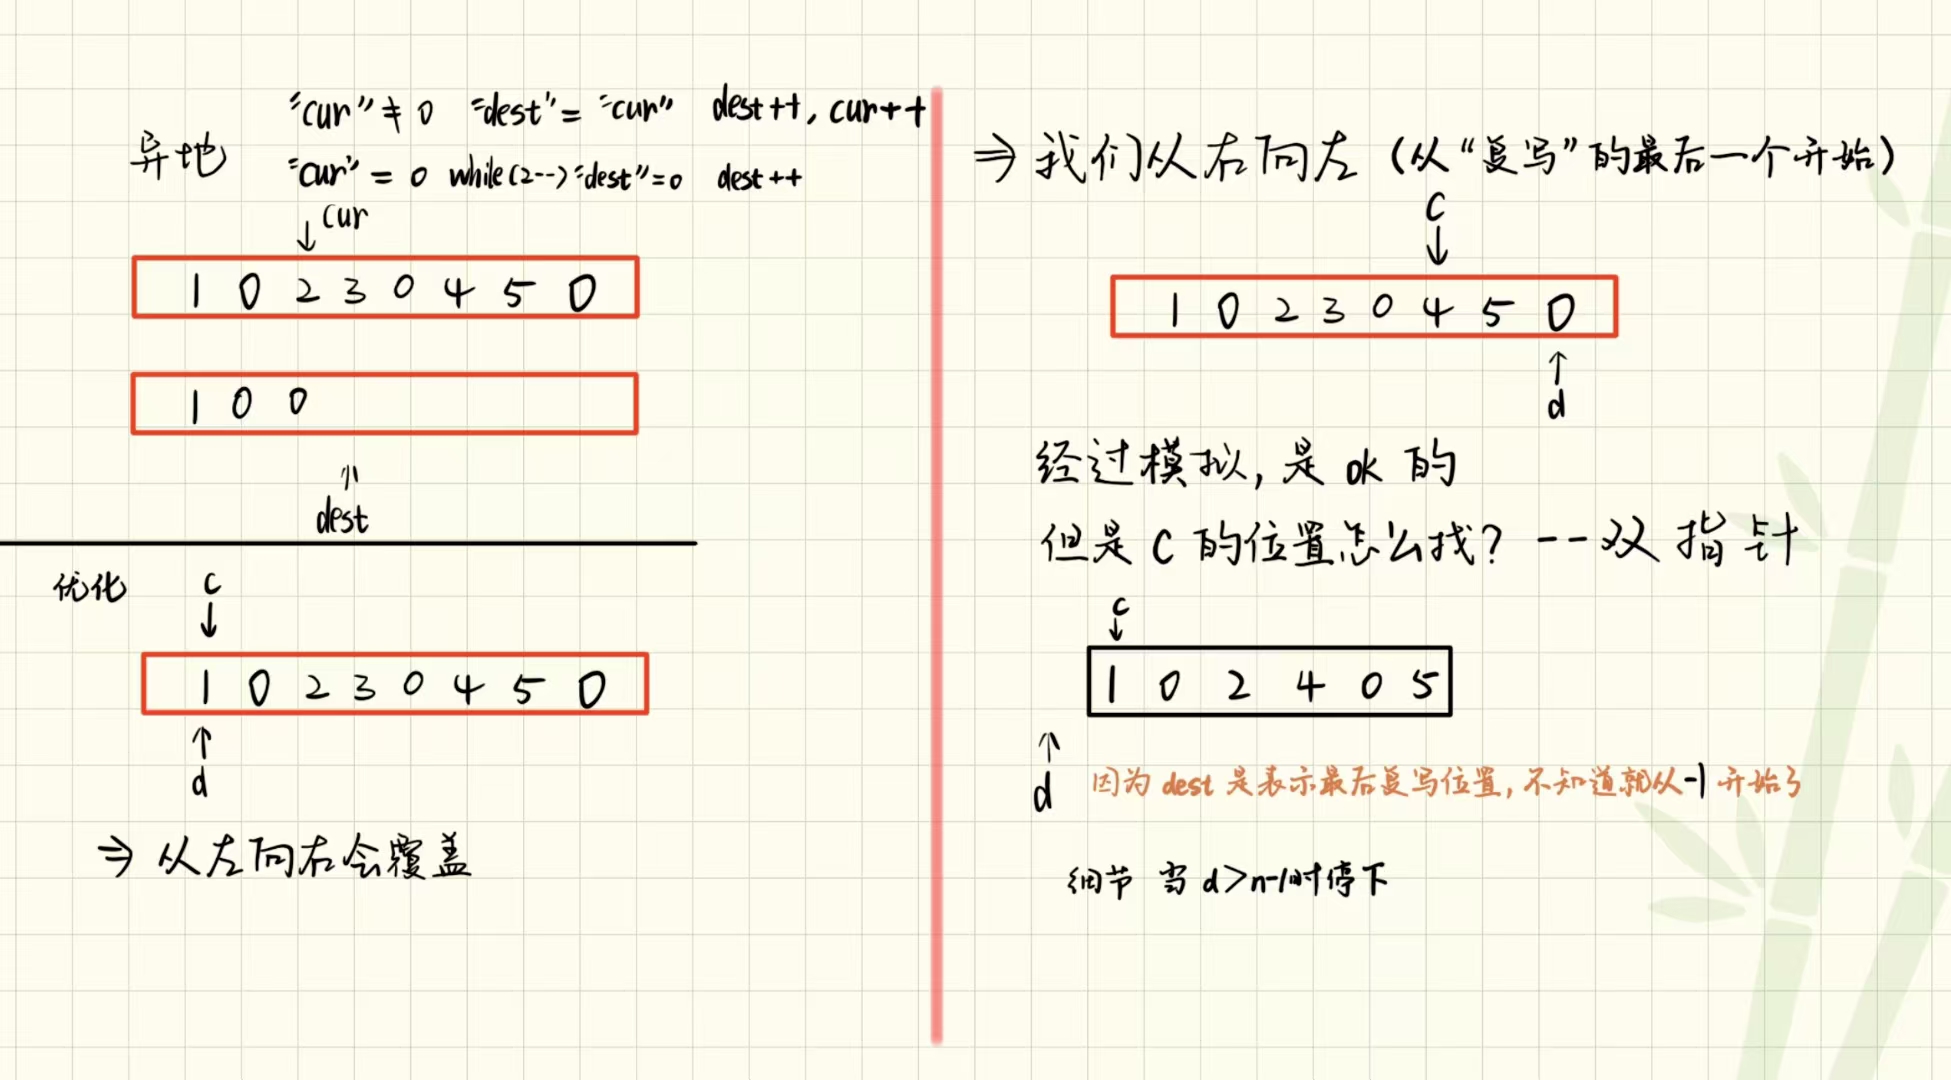 异地
"cur" ≠ 0 "dest" = "cur" dest++, cur++
"cur" = 0 while(2--) "dest"=0 dest++
cur
1 0 2 3 0 4 5 0
1 0 0
dest
优化
c
1 0 2 3 0 4 5 0
d
⇒ 从左向右会覆盖
⇒ 我们从右向左 (从"复写"的最后一个开始)
C
1 0 2 3 0 4 5 0
d
经过模拟, 是 ok 的
但是 C 的位置怎么找? -- 双指针
c
1 0 2 4 0 5
d
因为 dest 是表示最后复写位置, 不知道就从-1开始了
细节 当 d>n-1时停下